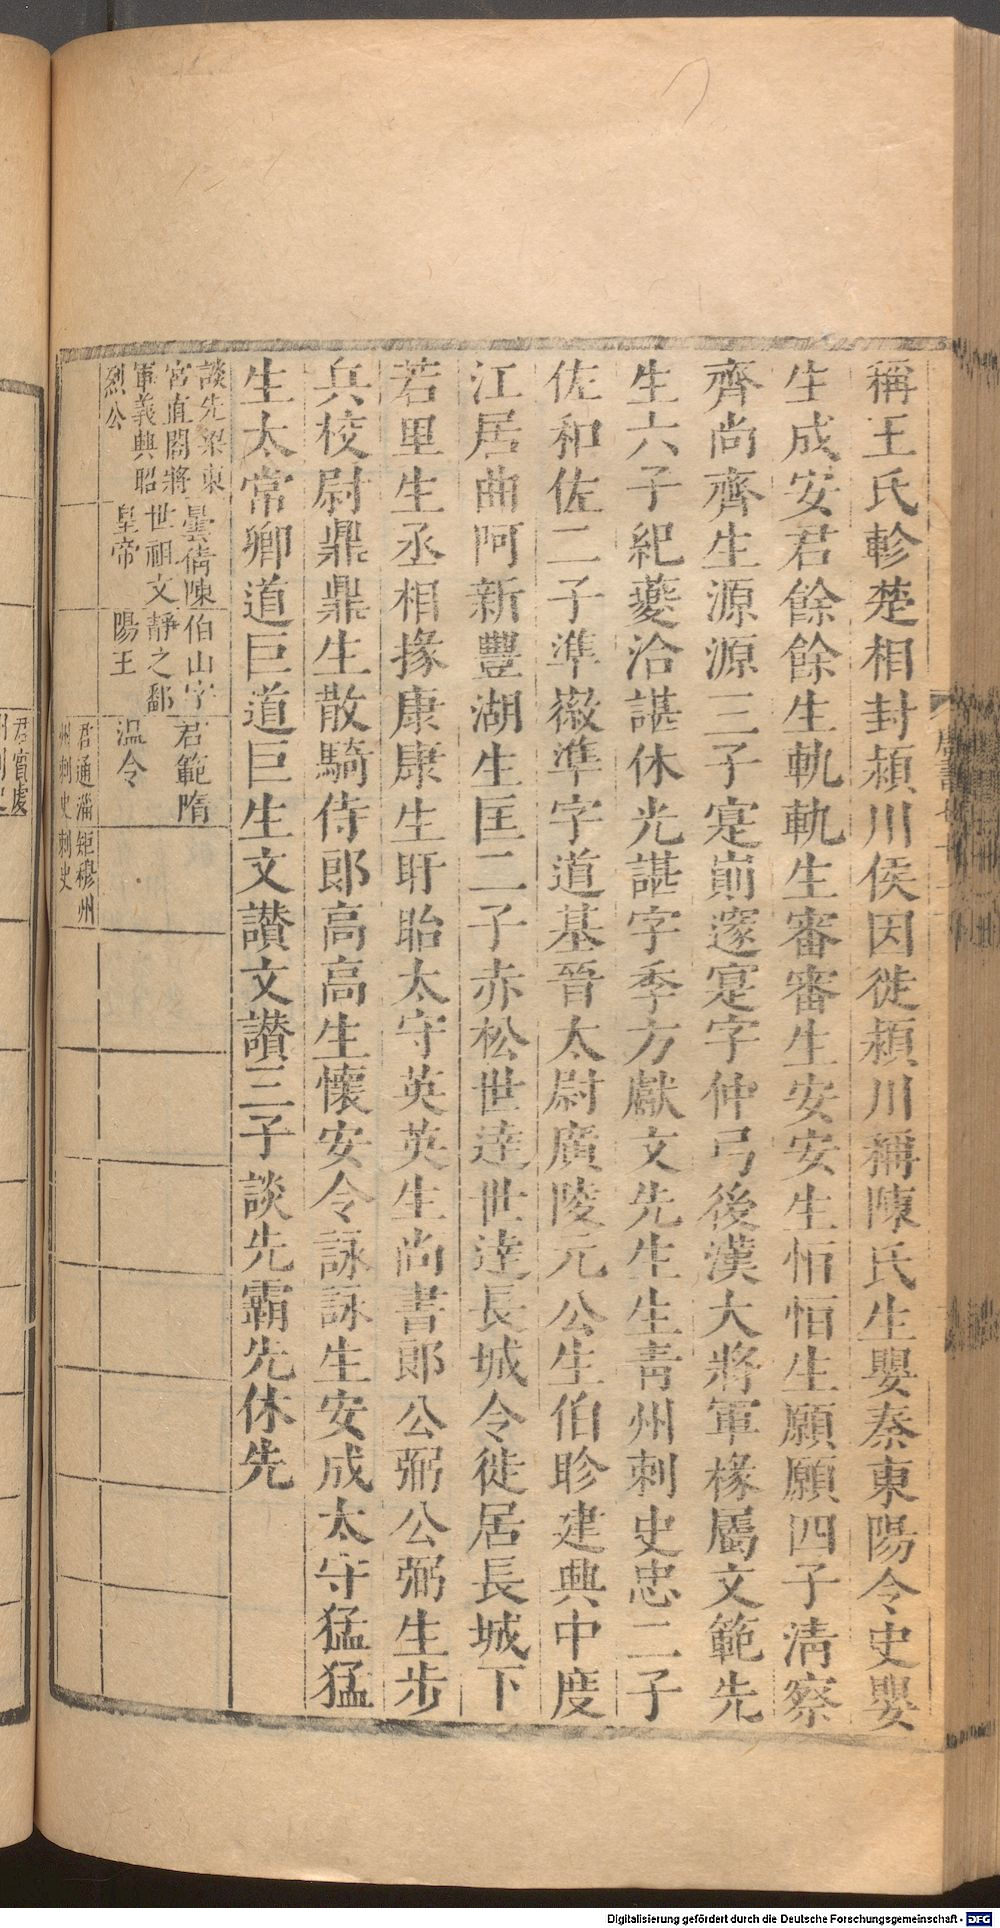 稱王氏軫楚相封潁川侯因徙潁川稱陳氏生嬰秦東陽令史嬰
生成安君餘餘生軌軌生審審生安安生恒恒生願願四子清察
齊尚齊生源源三子寔𡹘邃寔字仲弓後漢大將軍椽屬文範先
生六子紀夔洽諶休光諶字季方獻文先生生青州刺史忠二子
佐和佐二子準徽準字道基晉太尉廣陵元公生伯眕建興中度
江居曲阿新豐湖生匡二子赤松世逹世逹長城令徙居長城下
若里生丞相掾康康生盱眙太守英英生尚書郎公弼公弼生步
兵校尉鼎鼎生散騎侍郎高高生懷安令詠詠生安成太守猛猛
生太常卿道巨道巨生文讃文讃三子談先霸先休先
談先梁東
宮直閤將
軍義興昭
烈公
曇蒨陳
世祖文
皇帝
伯山字
靜之鄱
陽王
君範隋
温令
君通淄
州刺史
矩穆州
刺史
君賓虔
州刺史
Digitalisierung gefördert durch die Deutsche Forschungsgemeinschaft - DFG